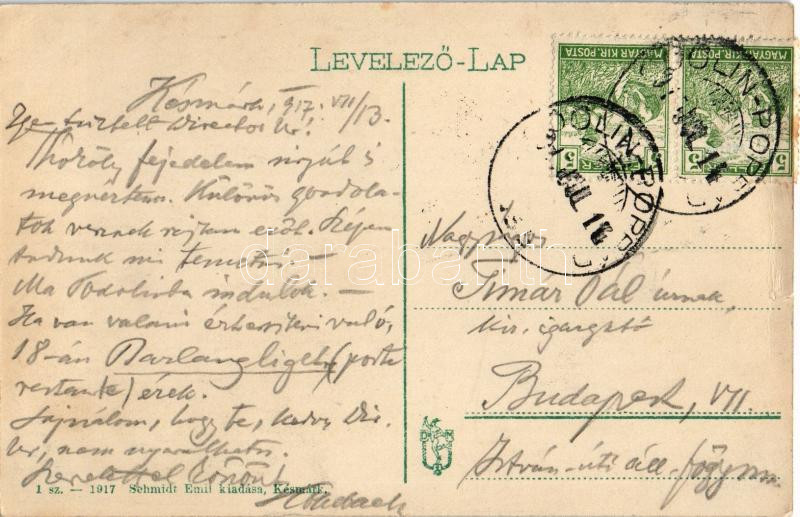 LEVELEZŐ-LAP
MAGYAR KIR. POSTA
MAGYAR KIR. POSTA
5
5
PODOLIN-POPRÁD
Késmárk, 917. VII/13.
Igen tisztelt Director Úr!
fejedelem sírját is
megnéztem. Különös gondola-
tok vesznek rajtam erőt. Szépen
tudunk mi temetni. —
Ma Podolinba indulok. —
Ha van valami értesíteni való,
18-án Barlangliget (poste
restante) érek.
Sajnálom, hogy te, kedves Dir.
Úr, nem nyaralhatsz.
Szeretettel köszönt
Nagyságos
Timár Pál úrnak
kir. igazgató
Budapest, VII.
István-úti áll. főgymn.
1 sz. — 1917 Schmidt Emil kiadása, Késmárk.
darabanth